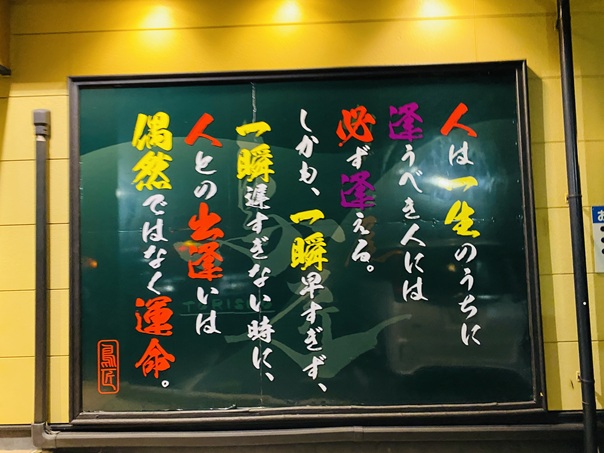 人は一生のうちに
逢うべき人には
必ず逢える。
しかも、一瞬早すぎず、
一瞬遅すぎない時に、
人との出逢いは
偶然ではなく運命。
鳥匠